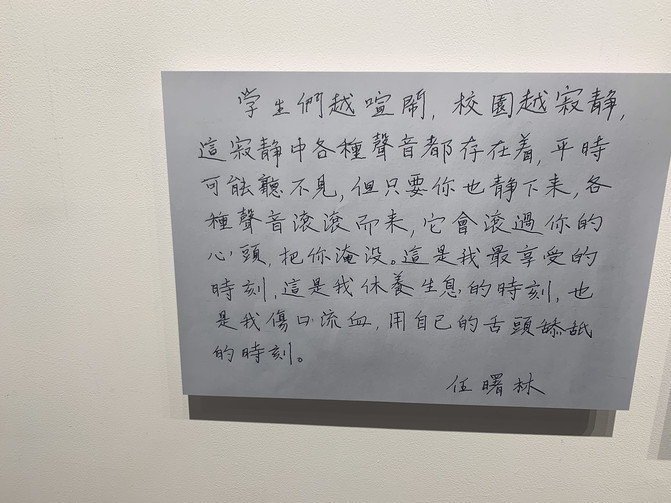 学生們越喧鬧，校園越寂静，
這寂静中各種聲音都存在着，平時
可能聽不見，但只要你也静下来，各
種聲音滚滚而来，它會滚過你的
心頭，把你淹没。這是我最享受的
時刻，這是我休養生息的時刻，也
是我傷口流血，用自己的舌頭舔舐
的時刻。
伍曙林